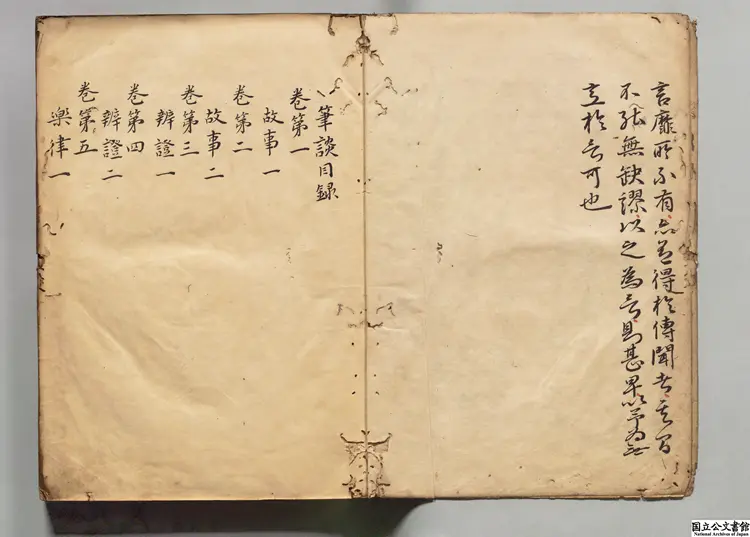 言靡所不有亦有得於傳聞者其間
不能無缺謬以之為言則甚卑以予為無
意於言可也
筆談目録
卷第一
故事一
卷第二
故事二
卷第三
辨證一
卷第四
辨證二
卷第五
樂律一
国立公文書館
National Archives of Japan